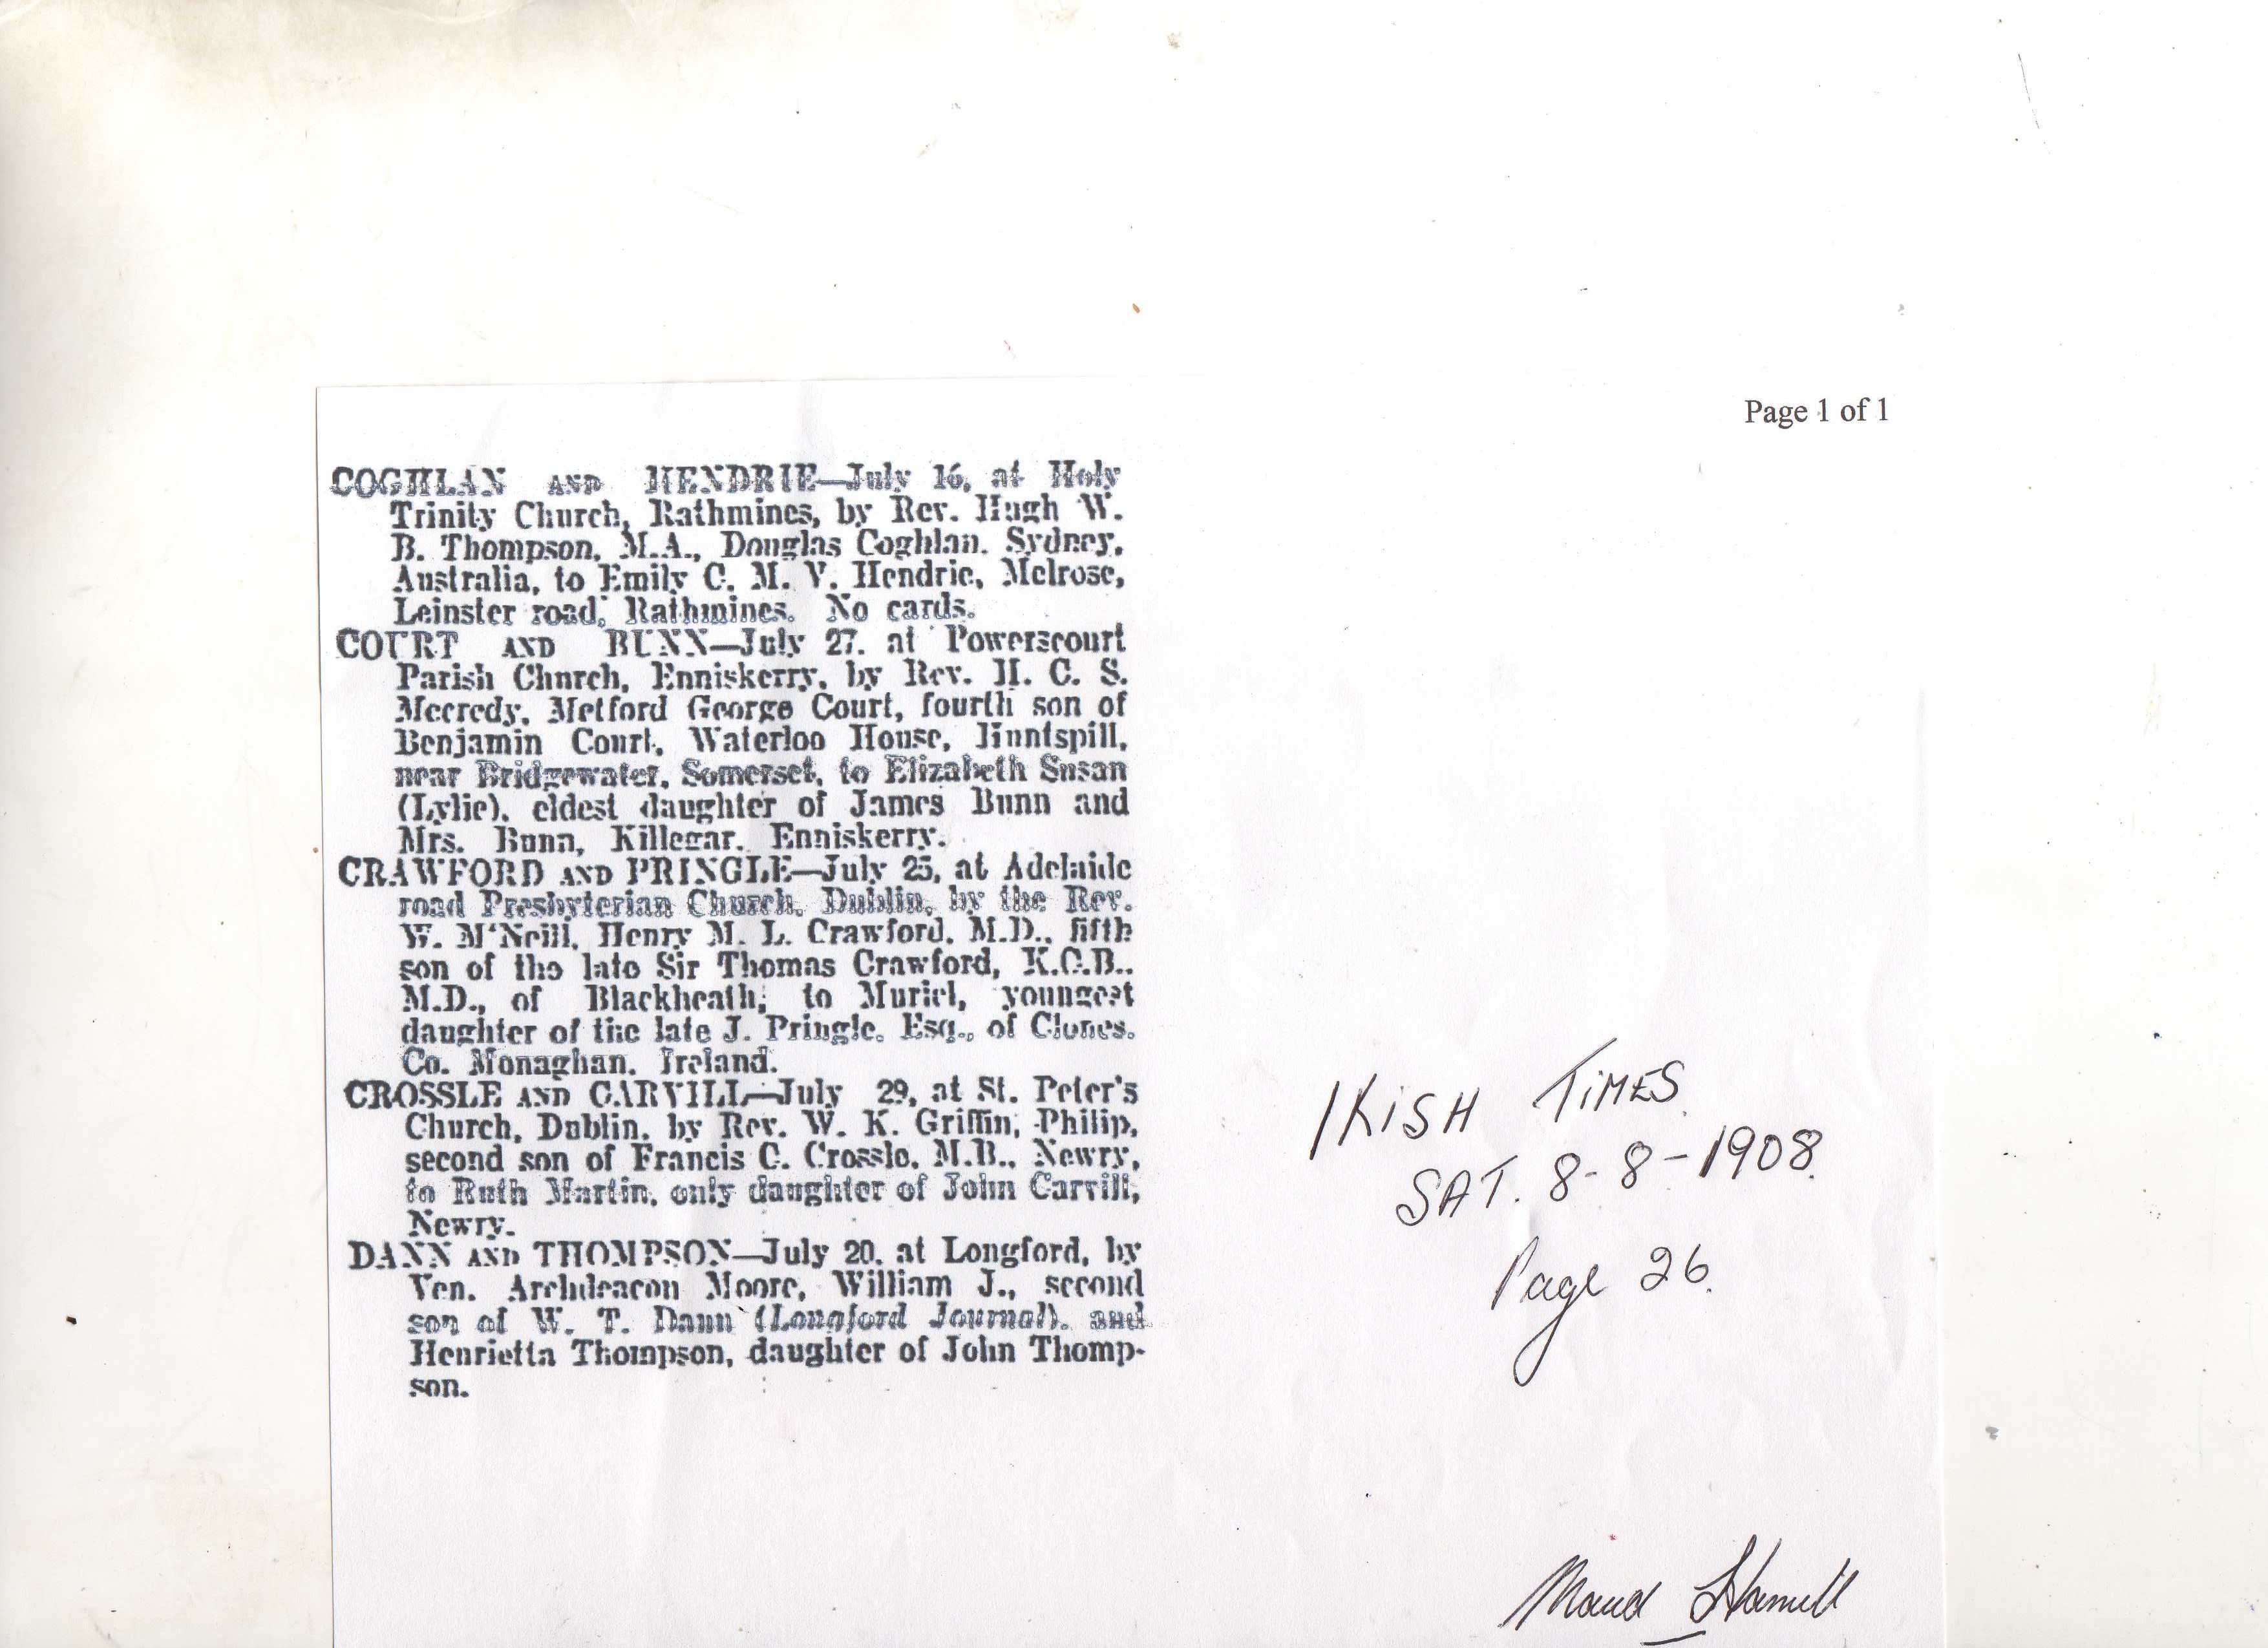 Page 1 of 1
COGHLAN AND HENDRIE—July 16, at Holy
Trinity Church, Rathmines, by Rev. Hugh W.
B. Thompson, M.A., Douglas Coghlan, Sydney,
Australia, to Emily C. M. V. Hendrie, Melrose,
Leinster road, Rathmines. No cards.
COURT AND BUNN—July 27, at Powerscourt
Parish Church, Enniskerry, by Rev. H. C. S.
Mecredy, Metford George Court, fourth son of
Benjamin Court, Waterloo House, Huntspill,
near Bridgewater, Somerset, to Elizabeth Susan
(Lylie), eldest daughter of James Bunn and
Mrs. Bunn, Killegar, Enniskerry.
CRAWFORD AND PRINGLE—July 25, at Adelaide
road Presbyterian Church, Dublin, by the Rev.
W. M'Neill, Henry M. L. Crawford, M.D., fifth
son of the late Sir Thomas Crawford, K.C.B.,
M.D., of Blackheath, to Muriel, youngest
daughter of the late J. Pringle, Esq., of Clones,
Co. Monaghan, Ireland.
CROSSLE AND CARVILL—July 29, at St. Peter's
Church, Dublin, by Rev. W. K. Griffin, Philip,
second son of Francis C. Crossle, M.B., Newry,
to Ruth Martin, only daughter of John Carvill,
Newry.
DANN AND THOMPSON—July 20, at Longford, by
Ven. Archdeacon Moore, William J., second
son of W. T. Dann (Longford Journal), and
Henrietta Thompson, daughter of John Thomp-
son.
IRISH TIMES
SAT. 8-8-1908.
Page 26.
Maud Hamill